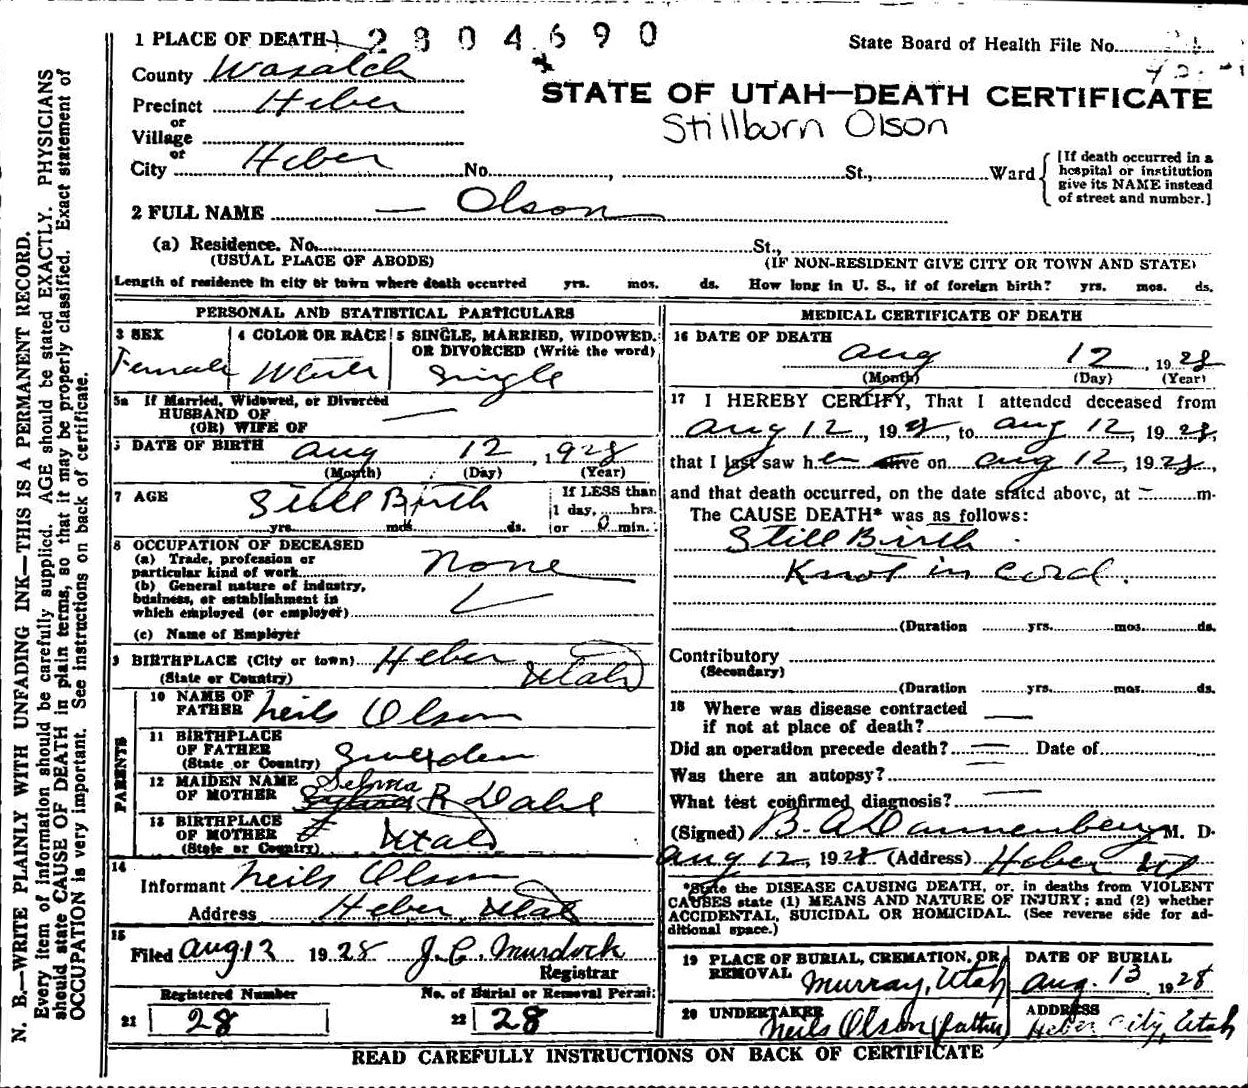 1 PLACE OF DEATH 2804690 State Board of Health File No.
County Wasatch
STATE OF UTAH—DEATH CERTIFICATE
Precinct Heber
Stillborn Olson
or
Village
or
City Heber No. , St., Ward
[If death occurred in a
hospital or institution
give its NAME instead
of street and number.]
2 FULL NAME — Olson
(a) Residence. No. St.,
(USUAL PLACE OF ABODE) (IF NON-RESIDENT GIVE CITY OR TOWN AND STATE)
Length of residence in city or town where death occurred yrs. mos. ds. How long in U. S., if of foreign birth? yrs. mos. ds.
PERSONAL AND STATISTICAL PARTICULARS
3 SEX
Female
4 COLOR OR RACE
White
5 SINGLE, MARRIED, WIDOWED.
OR DIVORCED (Write the word)
Single
5a If Married, Widowed, or Divorced
HUSBAND OF
(OR) WIFE OF —
6 DATE OF BIRTH Aug 12, 1928
(Month) (Day) (Year)
7 AGE Still Birth
yrs. mos. ds.
If LESS than
1 day, hrs.
or 0 min.
8 OCCUPATION OF DECEASED
(a) Trade, profession or
particular kind of work None
(b) General nature of industry,
business, or establishment in
which employed (or employer)
(c) Name of Employer
9 BIRTHPLACE (City or town) Heber
(State or Country) Utah
PARENTS
10 NAME OF
FATHER Neils Olson
11 BIRTHPLACE
OF FATHER
(State or Country) Sweden
12 MAIDEN NAME Selma
OF MOTHER R Dahl
13 BIRTHPLACE
OF MOTHER
(State or Country) Utah
14
Informant Neils Olson
Address Heber, Utah
15
Filed Aug 12 1928 J. C. Murdock
Registrar
Registered Number No. of Burial or Removal Permit
21 28 22 28
MEDICAL CERTIFICATE OF DEATH
16 DATE OF DEATH
Aug 12, 1928
(Month) (Day) (Year)
17 I HEREBY CERTIFY, That I attended deceased from
Aug 12, 1928, to Aug 12, 1928,
that I last saw her alive on Aug 12, 1928,
and that death occurred, on the date stated above, at — m.
The CAUSE DEATH* was as follows:
Still Birth
Knot in Cord.
(Duration yrs. mos. ds.
Contributory
(Secondary)
(Duration yrs. mos. ds.
18 Where was disease contracted
if not at place of death? —
Did an operation precede death? — Date of
Was there an autopsy? —
What test confirmed diagnosis? —
(Signed) B. A. Dannenberg M. D.
Aug 12, 1928 (Address) Heber Ut
*State the DISEASE CAUSING DEATH, or, in deaths from VIOLENT
CAUSES state (1) MEANS AND NATURE OF INJURY; and (2) whether
ACCIDENTAL, SUICIDAL OR HOMICIDAL. (See reverse side for ad-
ditional space.)
19 PLACE OF BURIAL, CREMATION, OR
REMOVAL Murray, Utah
DATE OF BURIAL
Aug. 13 1928
20 UNDERTAKER
Neils Olson (father)
ADDRESS
Heber City, Utah
READ CAREFULLY INSTRUCTIONS ON BACK OF CERTIFICATE
N. B.—WRITE PLAINLY WITH UNFADING INK—THIS IS A PERMANENT RECORD.
Every item of information should be carefully supplied. AGE should be stated EXACTLY. PHYSICIANS
should state CAUSE OF DEATH in plain terms, so that it may be properly classified. Exact statement of
OCCUPATION is very important. See instructions on back of certificate.